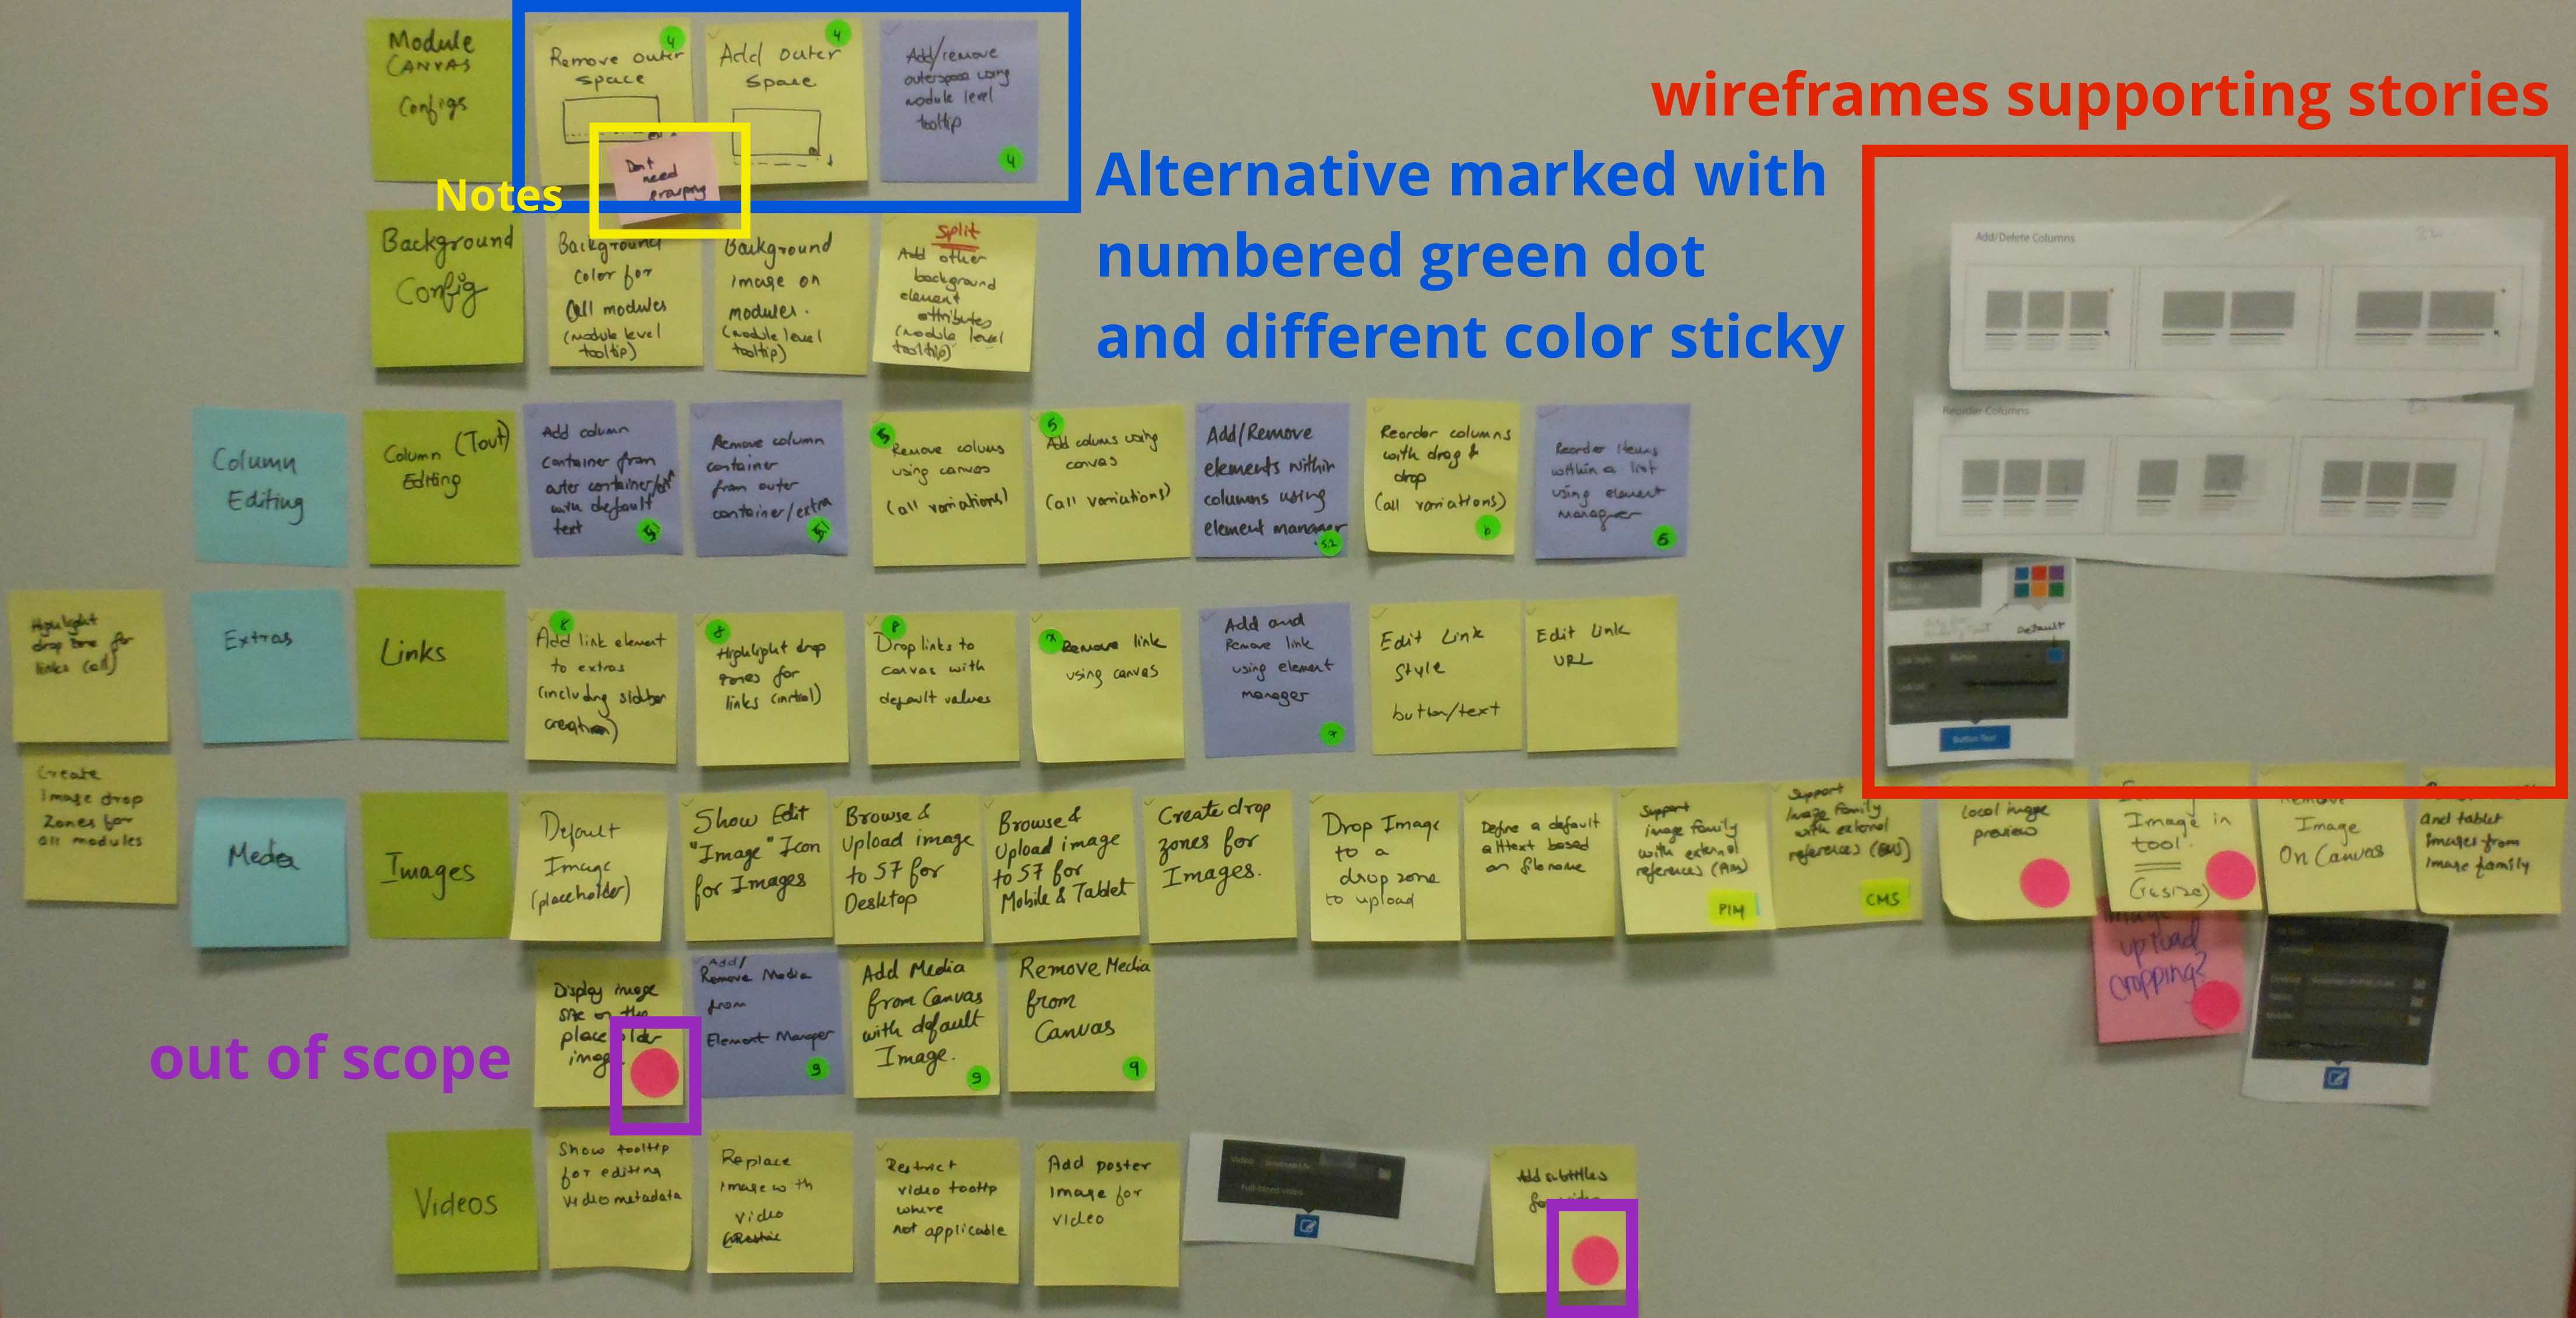 Module
CANVAS
Configs
Remove outer
space
4
Add outer
space
4
Add/remove
outerspace using
module level
tooltip
4
Don't
need
grouping
Notes
wireframes supporting stories
Alternative marked with
numbered green dot
and different color sticky
Background
Config
Background
color for
all modules
(module level
tooltip)
Background
image on
modules.
(module level
tooltip)
Split
Add other
background
element
attributes
(module level
tooltip)
Add/Delete Columns
Reorder Columns
Column
Editing
Column (Tout)
Editing
Add column
container from
outer container/
with default
text
5
Remove column
container
from outer
container/extra
5
5
Remove colums
using canvas
(all variations)
5
Add colums using
canvas
(all variations)
Add/Remove
elements within
columns using
element manager
5.2
Reorder columns
with drag &
drop
(all variations)
6
Reorder items
within a list
using element
manager
6
Highlight
drop zone for
links (all)
Extras
Links
8
Add link element
to extras
(including sidebar
creation)
8
Highlight drop
zones for
links (initial)
8
Drop links to
canvas with
default values
7
Remove link
using canvas
Add and
Remove link
using element
manager
7
Edit Link
Style
button/text
Edit Link
URL
Default
Button Text
Create
image drop
zones for
all modules
Media
Images
Default
Image
(placeholder)
Show Edit
"Image" Icon
for Images
Browse &
Upload image
to S7 for
Desktop
Browse &
Upload image
to S7 for
Mobile & Tablet
Create drop
zones for
Images.
Drop Image
to a
drop zone
to upload
Define a default
alttext based
on filename
Support
image family
with external
references
PIM
Support
Image family
with external
references
CMS
Local image
preview
Image in
tool.
(resize)
Remove
Image
On Canvas
and tablet
images from
image family
Image
upload
cropping?
out of scope
Display image
size on the
placeholder
image
Add/
Remove Media
from
Element Manager
9
Add Media
from Canvas
with default
Image.
9
Remove Media
from
Canvas
9
Videos
Show tooltip
for editing
video metadata
Replace
image with
video
Restrict
video tooltip
where
not applicable
Add poster
image for
video
Video
Full-bleed video
Add subtitles
for video